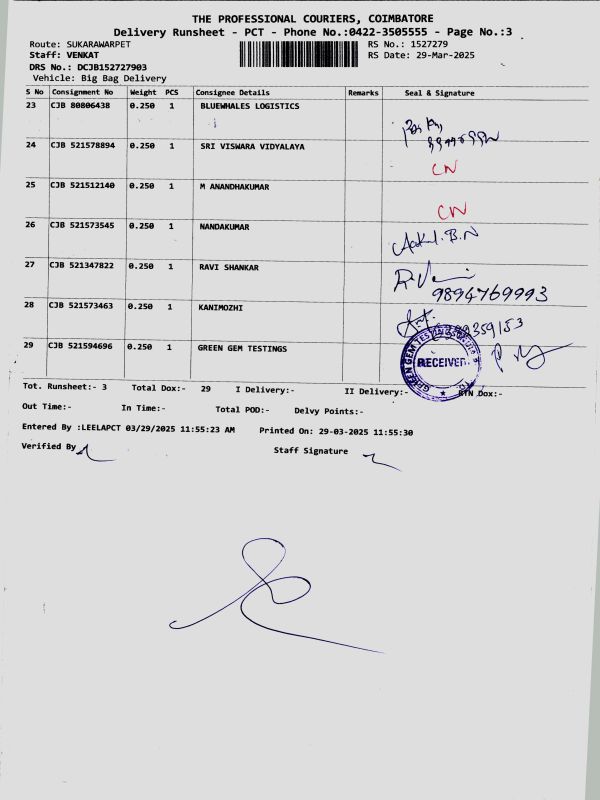 THE PROFESSIONAL COURIERS, COIMBATORE
Delivery Runsheet - PCT - Phone No.:0422-3505555 - Page No.:3
Route: SUKARAWARPET RS No.: 1527279
Staff: VENKAT RS Date: 29-Mar-2025
DRS No.: DCJB152727903
Vehicle: Big Bag Delivery
S No Consignment No Weight PCS Consignee Details Remarks Seal & Signature
23 CJB 80806438 0.250 1 BLUEWHALES LOGISTICS
24 CJB 521578894 0.250 1 SRI VISWARA VIDYALAYA
CN
25 CJB 521512140 0.250 1 M ANANDHAKUMAR
CN
26 CJB 521573545 0.250 1 NANDAKUMAR
27 CJB 521347822 0.250 1 RAVI SHANKAR
9894769993
28 CJB 521573463 0.250 1 KANIMOZHI
29 CJB 521594696 0.250 1 GREEN GEM TESTINGS
RECEIVED
Tot. Runsheet:- 3 Total Dox:- 29 I Delivery:- II Delivery:- RTN Dox:-
Out Time:- In Time:- Total POD:- Delvy Points:-
Entered By :LEELAPCT 03/29/2025 11:55:23 AM Printed On: 29-03-2025 11:55:30
Verified By Staff Signature